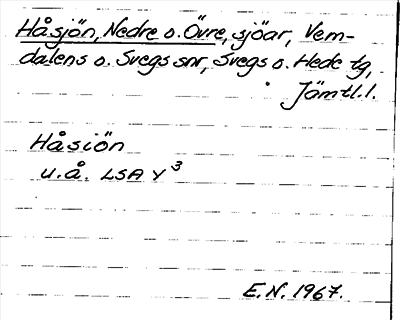 Håsjön, Nedre o. Övre, sjöar, Vem-
dalens o. Svegs snr, Svegs o. Hede tg,
Jämtl. l.
Håsiön
u.å. LSA Y³
E.N. 1967.